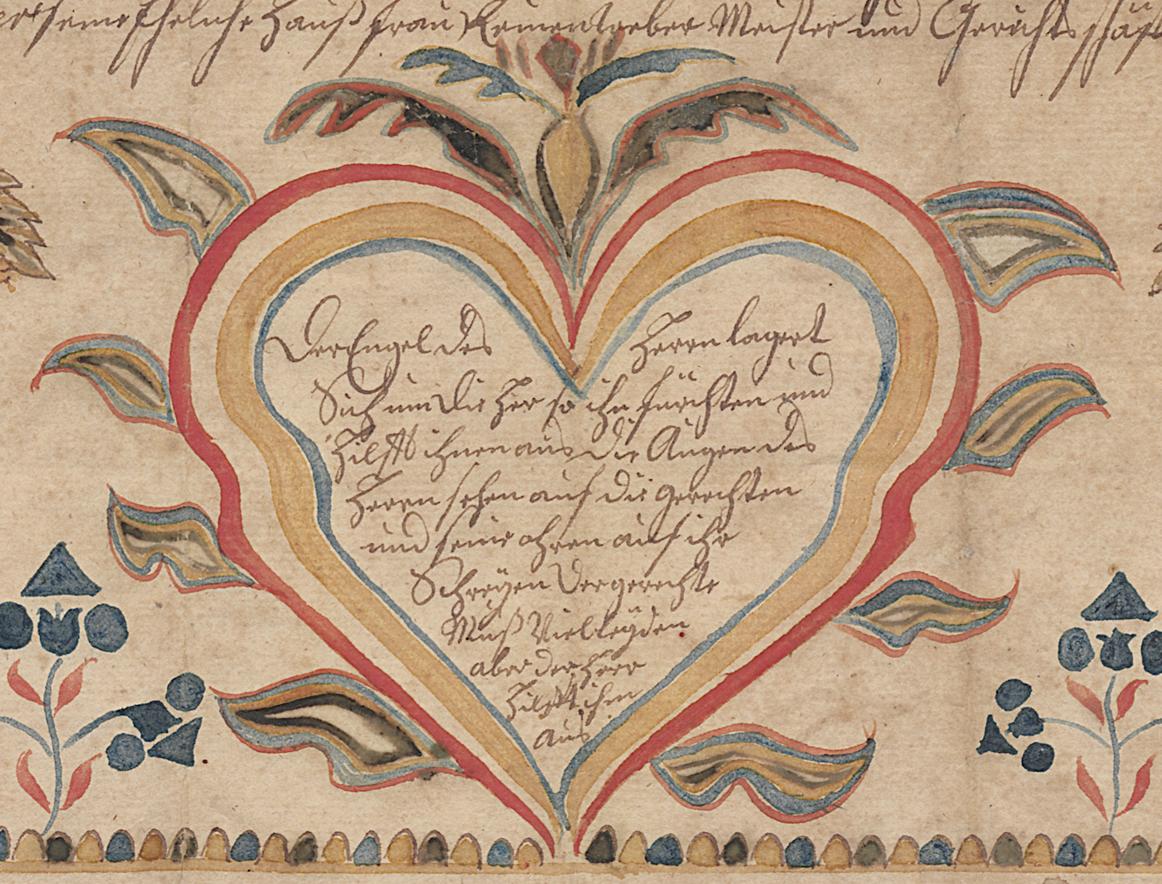 seine Eheliche Hauß frau Riemen weber Meister und Gerichts schäff
Der Engel des Herrn lagert
Sich um die her so ihn fürchten und
Hilfft ihnen aus die Augen des
Herrn sehen auf die gerechten
und seine ohren auf ihr
Schreÿen Der gerechte
Muß Viel leÿden
aber der Herr
Hilfft ihm
aus